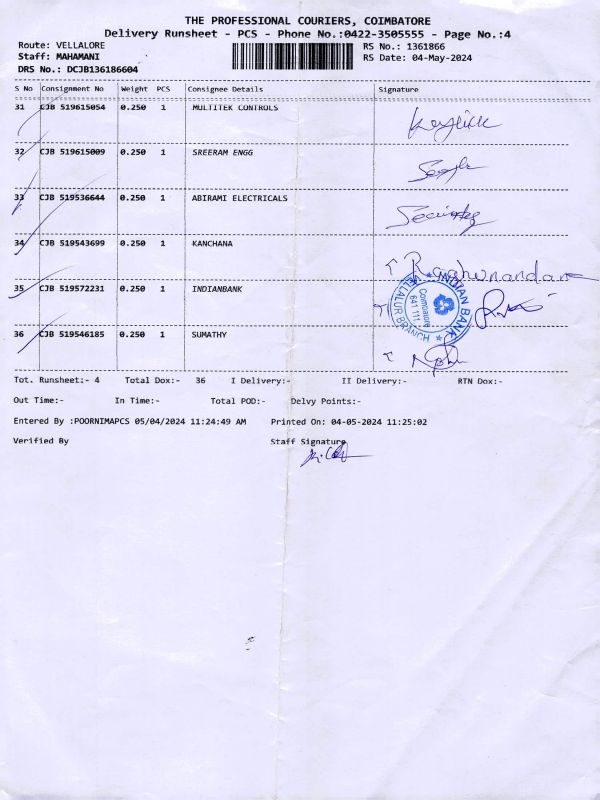 THE PROFESSIONAL COURIERS, COIMBATORE
Delivery Runsheet - PCS - Phone No.:0422-3505555 - Page No.:4
Route: VELLALORE RS No.: 1361866
Staff: MAHAMANI RS Date: 04-May-2024
DRS No.: DCJB136186604
S No Consignment No Weight PCS Consignee Details Signature
31 CJB 519615054 0.250 1 MULTITEK CONTROLS
32 CJB 519615009 0.250 1 SREERAM ENGG
33 CJB 519536644 0.250 1 ABIRAMI ELECTRICALS Security
34 CJB 519543699 0.250 1 KANCHANA Raghunandan
35 CJB 519572231 0.250 1 INDIANBANK
INDIAN BANK
Coimbatore
641 111
VELLALUR BRANCH
36 CJB 519546185 0.250 1 SUMATHY
Tot. Runsheet:- 4 Total Dox:- 36 I Delivery:- II Delivery:- RTN Dox:-
Out Time:- In Time:- Total POD:- Delvy Points:-
Entered By :POORNIMAPCS 05/04/2024 11:24:49 AM Printed On: 04-05-2024 11:25:02
Verified By Staff Signature